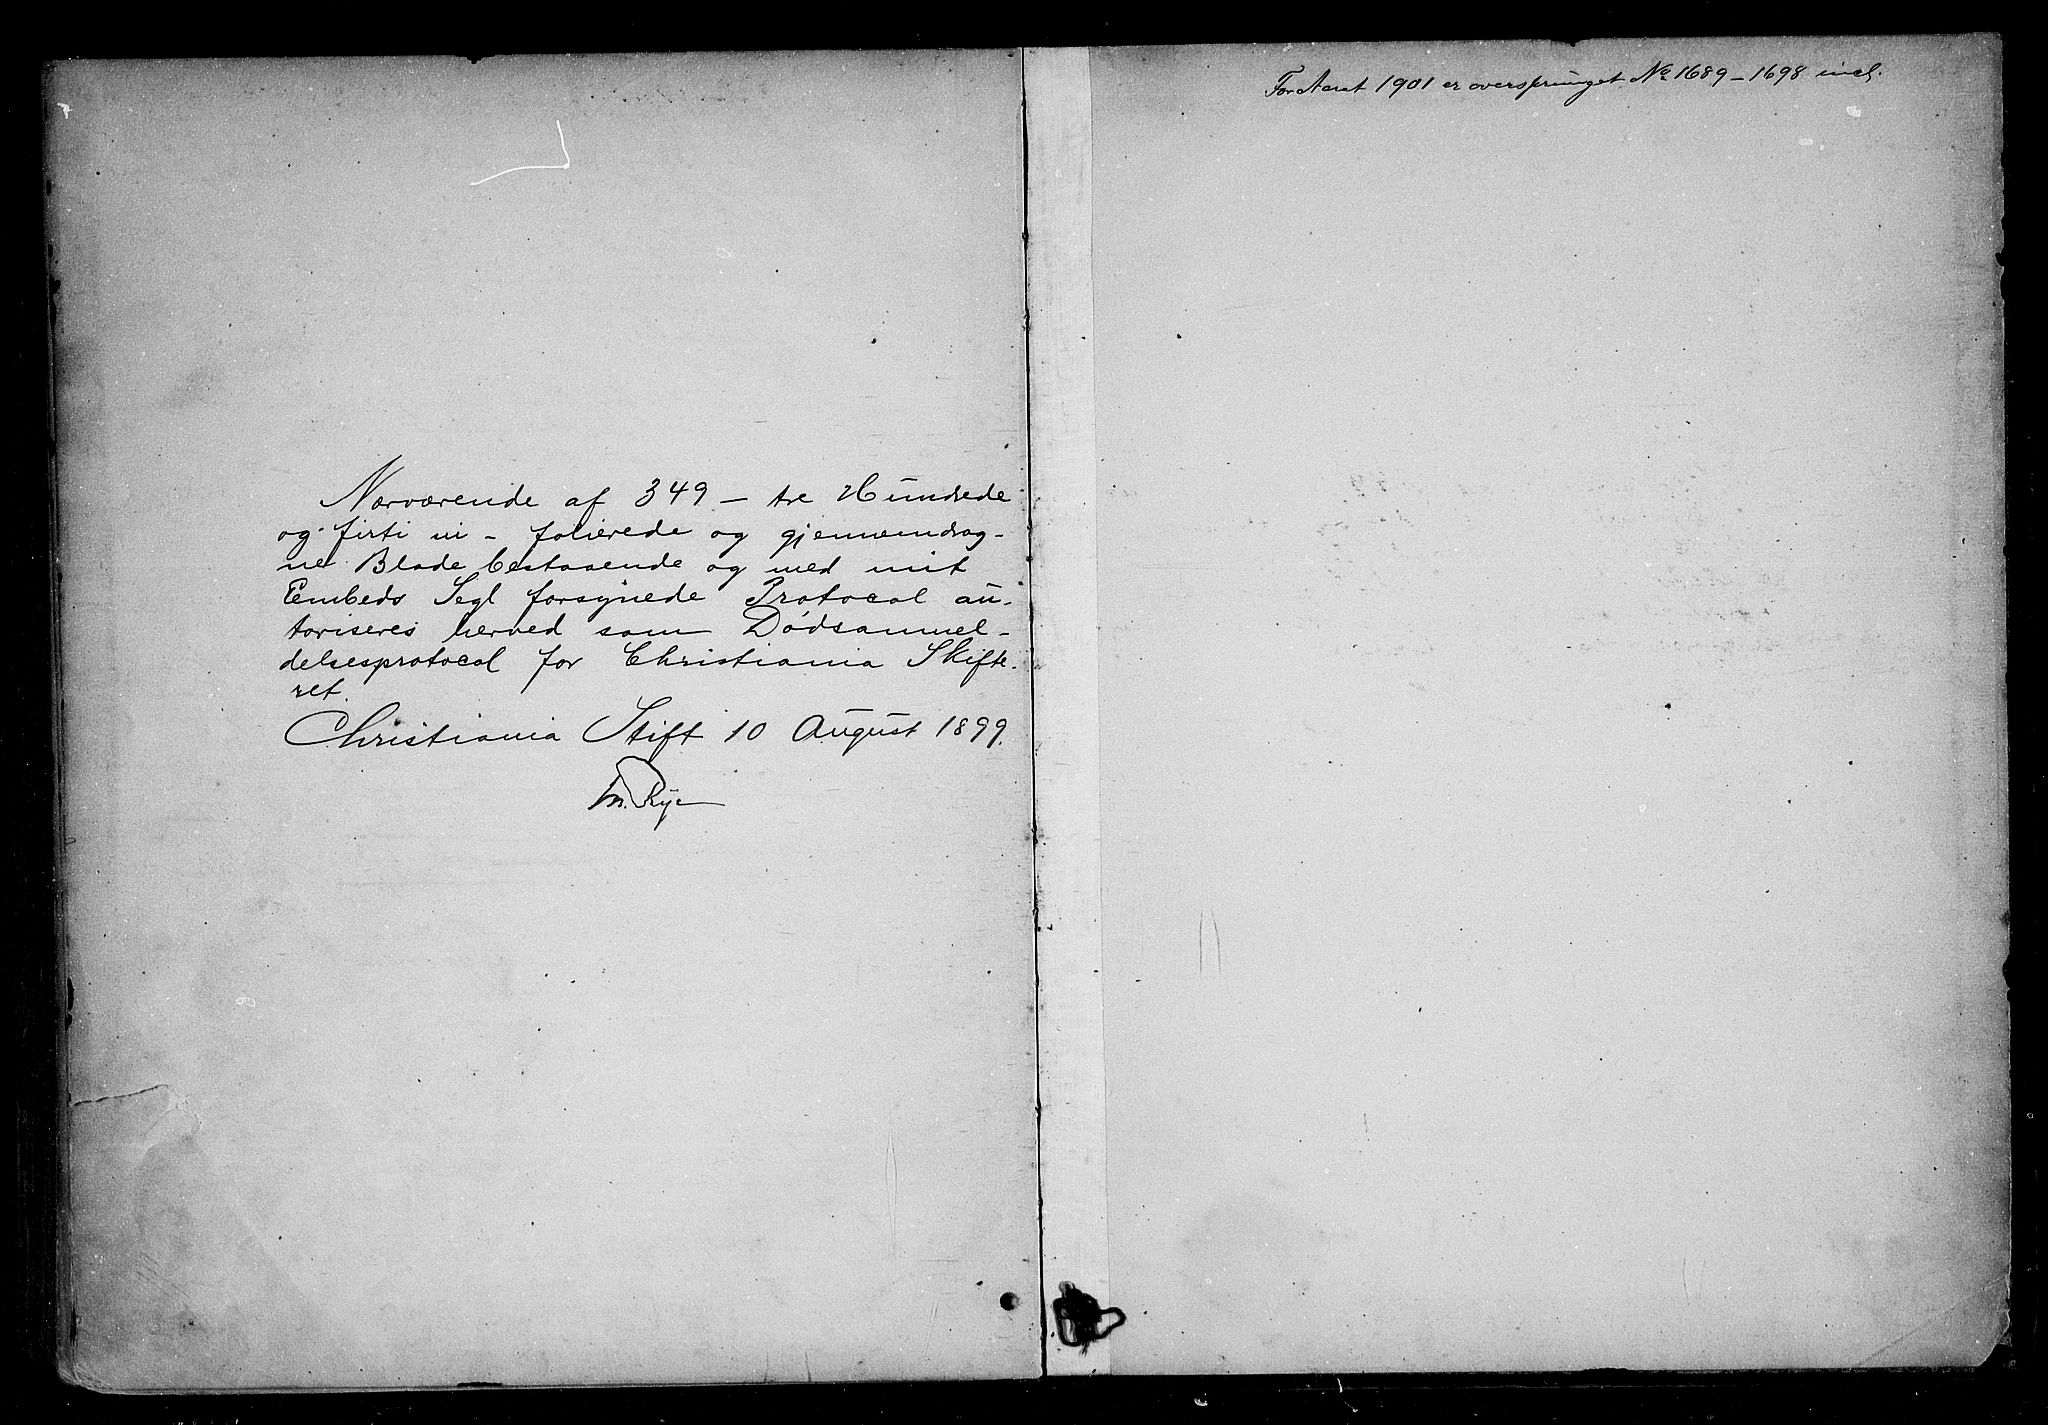 Nærværende af 349 – tre Hundrede
og firti ni – folierede og gjennemdrag-
ne Blade bestaaende og med mit
Embeds Segl forsynede Protocol au-
toriseres herved som Dødsanmel-
delsesprotocol for Christiania Skifte-
ret.
Christiania Stift 10 August 1899.
M. Rye
For Aaret 1901 er oversprunget No 1689 – 1698 incl.